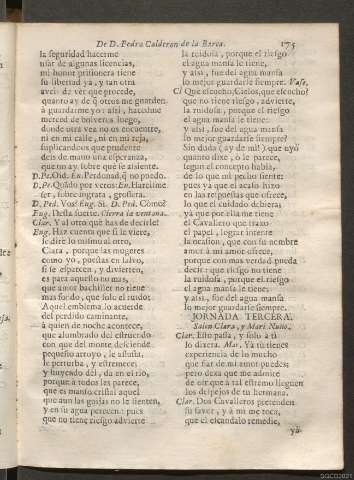 De D. Pedro Calderon de la Barca. 175
la seguridad hacerme
usar de algunas licencias,
mi honor prisionera tiene
su libertad ya, y tan otra
aveis de ver que procede,
quanto ay de q̃ otros me guarden
à guardarme yo: assi, hacedme
merced de bolveros luego,
donde otra vez no os encuentre,
ni en mi calle, ni en mi reja,
suplicandoos que prudente
deis de mano una esperanza,
que no ay sobre que se aliente.
D.Pe.Oid. Eu. Perdonad, q̃ no puedo.
D.Pe.Quãdo por veros Eu. Haréisme
ser, sobre ingrata, grossera.
D.Ped. Vos? Eug. Si. D. Ped. Còmo?
Eug. Desta suerte. Cierra la ventana.
Clar. Y al otro què has de decirle?
Eug. Haz cuenta que si le viere,
le dirè lo mismo al otro,
Clara, porque los mugeres
como yo, puestas en salvo,
si se esparcen, y divierten,
es para aquesto no mas,
que amor bachiller no tiene
mas fondo, que solo el ruido:
Aquel emblema lo acuerde
del perdido caminante,
à quien de noche acontece,
que alumbrado del estruendo
con que del monte desciende
pequeño arroyo, le assusta,
le perturba, y estremece;
y huyendo dèl, dà en el rio,
porque à todos les parece,
que es manso cristal aquel
que aun las guijas no le sienten,
y en su agua perecen: pues
que no tiene riesgo advierte
la ruidosa, porque el riesgo
el agua mansa le tiene,
y assi, fue del agua mansa
lo mejor guardarse siempre. Vase,
Cl Que escucho, Cielos, que escucho?
que no tiene riesgo, advierte,
la ruidosa, porque el riesgo
el agua mansa le tiene:
y assi, fue del agua mansa
lo mejor guardarse siempre?
Sin duda (ay de mi!) que oyò
quanto dixe, ò le parece,
segun el concepto habla,
de lo que mi pecho siente:
pues ya que el acaso hizo
en las respuestas que ofrece,
lo que el cuidado debiera,
yà que por ella me tiene
el Cavallero que traxo
el papel, lograr intente
la ocasion, que con su nombre
amor à mi amor ofrece,
porque con mas verdad pueda
decir: que riesgo no tiene
la ruidosa, porque el riesgo
el agua mansa le tiene,
y assi, fue del agua mansa
lo mejor guardarse siempre.
JORNADA TERCERA.
Salen Clara, y Mari Nuño.
Clar. Esto passa, y solo à ti
lo dixera. Mar. Ya tu tienes
experiencia de lo mucho
que fiar de mi amor puedes;
pero dexa que me admire
de oir que à tal estremo lleguen
los despejos de tu hermana.
Clar. Dos Cavalleros pretenden
su favor, y à mi me toca,
que el escandalo remedie,
yà